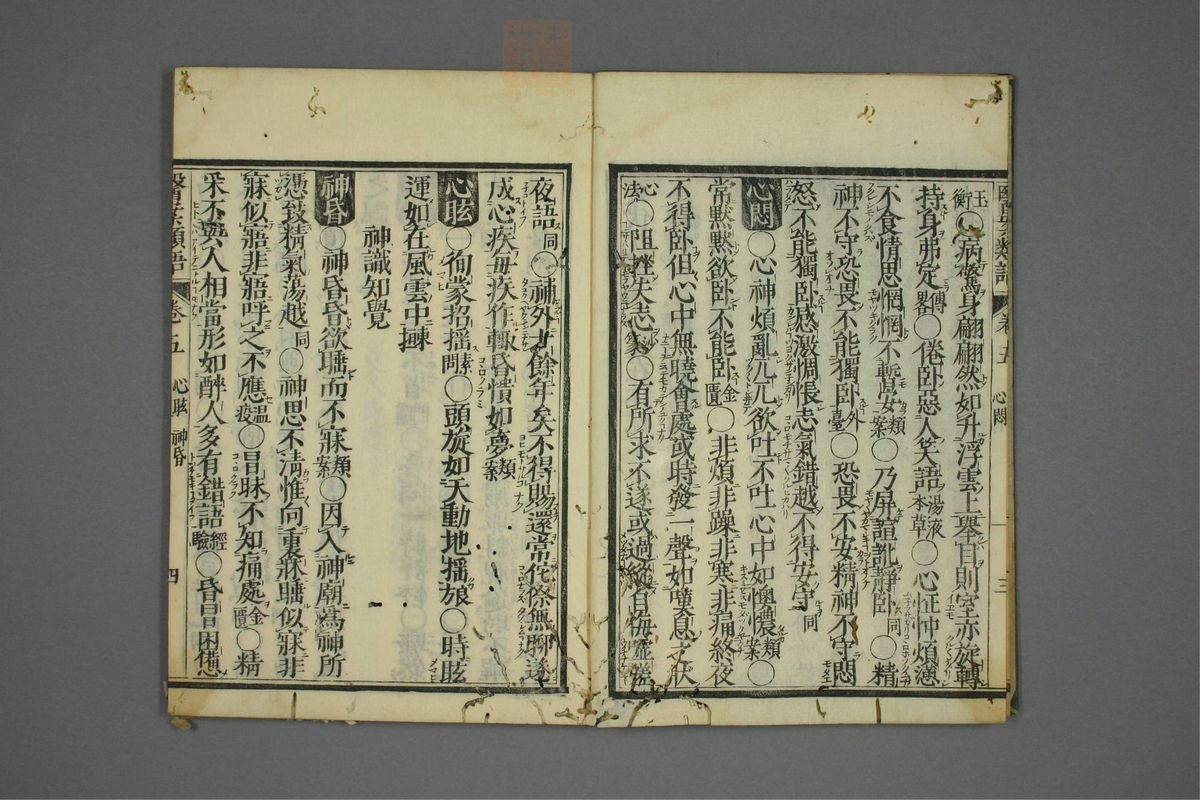 玉衡〇病驚身翩翩然如升浮雲上擧目則室亦旋轉
持身弗定傳畧〇倦臥惡人笑語湯液本草〇心怔忡煩懣
不食情思惘惘不暫安類案〇乃屏諠訛靜臥同〇精
神不守恐畏不能獨臥外臺〇恐畏不安精神不守悶
怒不能獨臥感激惆悵志氣錯越不得安守同
心悶〇心神煩亂兀兀欲吐不吐心中如懊憹類案〇
常默默欲臥不能臥金匱〇非煩非躁非寒非痛終夜
不得臥但心中無曉會處或時發一聲如嘆息之狀
心法〇阻挫失志必用全書〇有所求不遂或過終自悔
夜語同〇神外廿餘年矣不得賜還常侘傺無聊遂
成心疾每疾作輒昏憒如夢類案
心眩〇徇蒙招搖素問〇頭旋如天動地搖娘〇時眩
運如在風雲中揀
神識知覺
神昏〇神昏昏欲睡而不寐類案〇因入神廟爲神所
憑致精氣蕩越同〇神思不清惟向裏牀睡似寐非
寐似寤非寤呼之不應溫疫〇冒昧不知痛處金匱〇精
采不與人相當形如醉人多有錯語經驗〇昏冒困憊
醫案類語 卷五 心悶 三
醫案類語 卷五 心眩 神昏 四